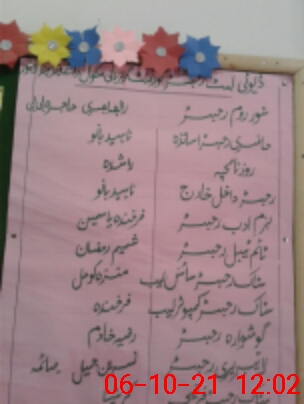 ڈیوٹی لسٹ رجسٹر گورنمنٹ گرلز سکول
سٹور روم رجسٹر
حاضری رجسٹر اساتذہ ناہید بانو
روزنامچہ راشدہ
رجسٹر داخل خارج ناہید بانو
بزم ادب رجسٹر فرخندہ یاسمین
ٹائم ٹیبل رجسٹر شمیم رمضان
سٹاک رجسٹر سائنس لیب منزہ کومل
سٹاک رجسٹر کمپیوٹر لیب فرخندہ
گوشوارہ رجسٹر رضیہ خادم
لائبریری رجسٹر نسرین جمیل صائمہ
رجسٹر
06-10-21 12:02